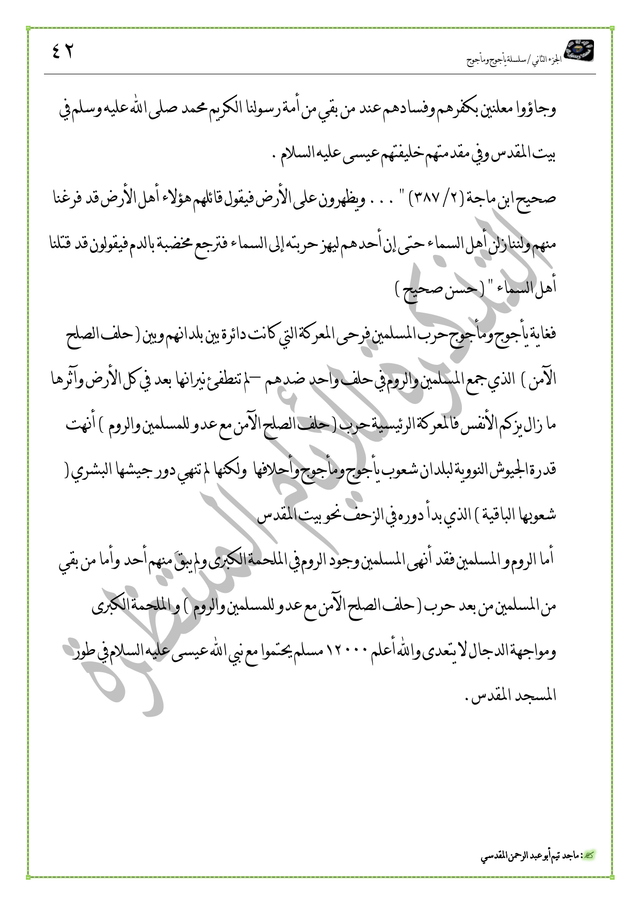 ٤٢
الجزء الثاني / سلسلة يأجوج ومأجوج
وجاؤوا معلنين بكفرهم وفسادهم عند من بقي من أمة رسولنا الكريم محمد صلى الله عليه وسلم في
بيت المقدس وفي مقدمتهم خليفتهم عيسى عليه السلام .
صحيح ابن ماجة (٢/ ٣٨٧) " ... ويظهرون على الأرض فيقول قائلهم هؤلاء أهل الأرض قد فرغنا
منهم ولننازلن أهل السماء حتى إن أحدهم ليهز حربته إلى السماء فترجع مخضبة بالدم فيقولون قد قتلنا
أهل السماء " ( حسن صحيح )
فغاية يأجوج ومأجوج حرب المسلمين فرحى المعركة التي كانت دائرة بين بلدانهم وبين ( حلف الصلح
الآمن ) الذي جمع المسلمين والروم في حلف واحد ضدهم – لم تنطفئ نيرانها بعد في كل الأرض وآثرها
ما زال يزكم الأنفس فالمعركة الرئيسية حرب ( حلف الصلح الآمن مع عدو للمسلمين والروم ) أنهت
قدرة الجيوش النووية لبلدان شعوب يأجوج ومأجوج وأحلافها ولكنها لم تنهي دور جيشها البشري (
شعوبها الباقية ) الذي بدأ دوره في الزحف نحو بيت المقدس
أما الروم و المسلمين فقد أنهى المسلمين وجود الروم في الملحمة الكبرى ولم يبق منهم أحد وأما من بقي
من المسلمين من بعد حرب ( حلف الصلح الآمن مع عدو للمسلمين والروم ) و الملحمة الكبرى
ومواجهة الدجال لا يتعدى والله أعلم ١٢٠٠٠ مسلم يحتموا مع نبي الله عيسى عليه السلام في طور
المسجد المقدس .
التذكرة للأيام المنتظرة
: ماجد تيم أبو عبد الرحمن المقدسي